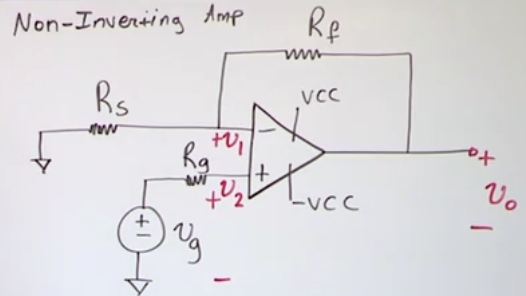 Non-Inverting Amp
Rf
Rs
VCC
+v1
-
Rg
+
+v2
-VCC
+
vo
-
+
-
vg
-